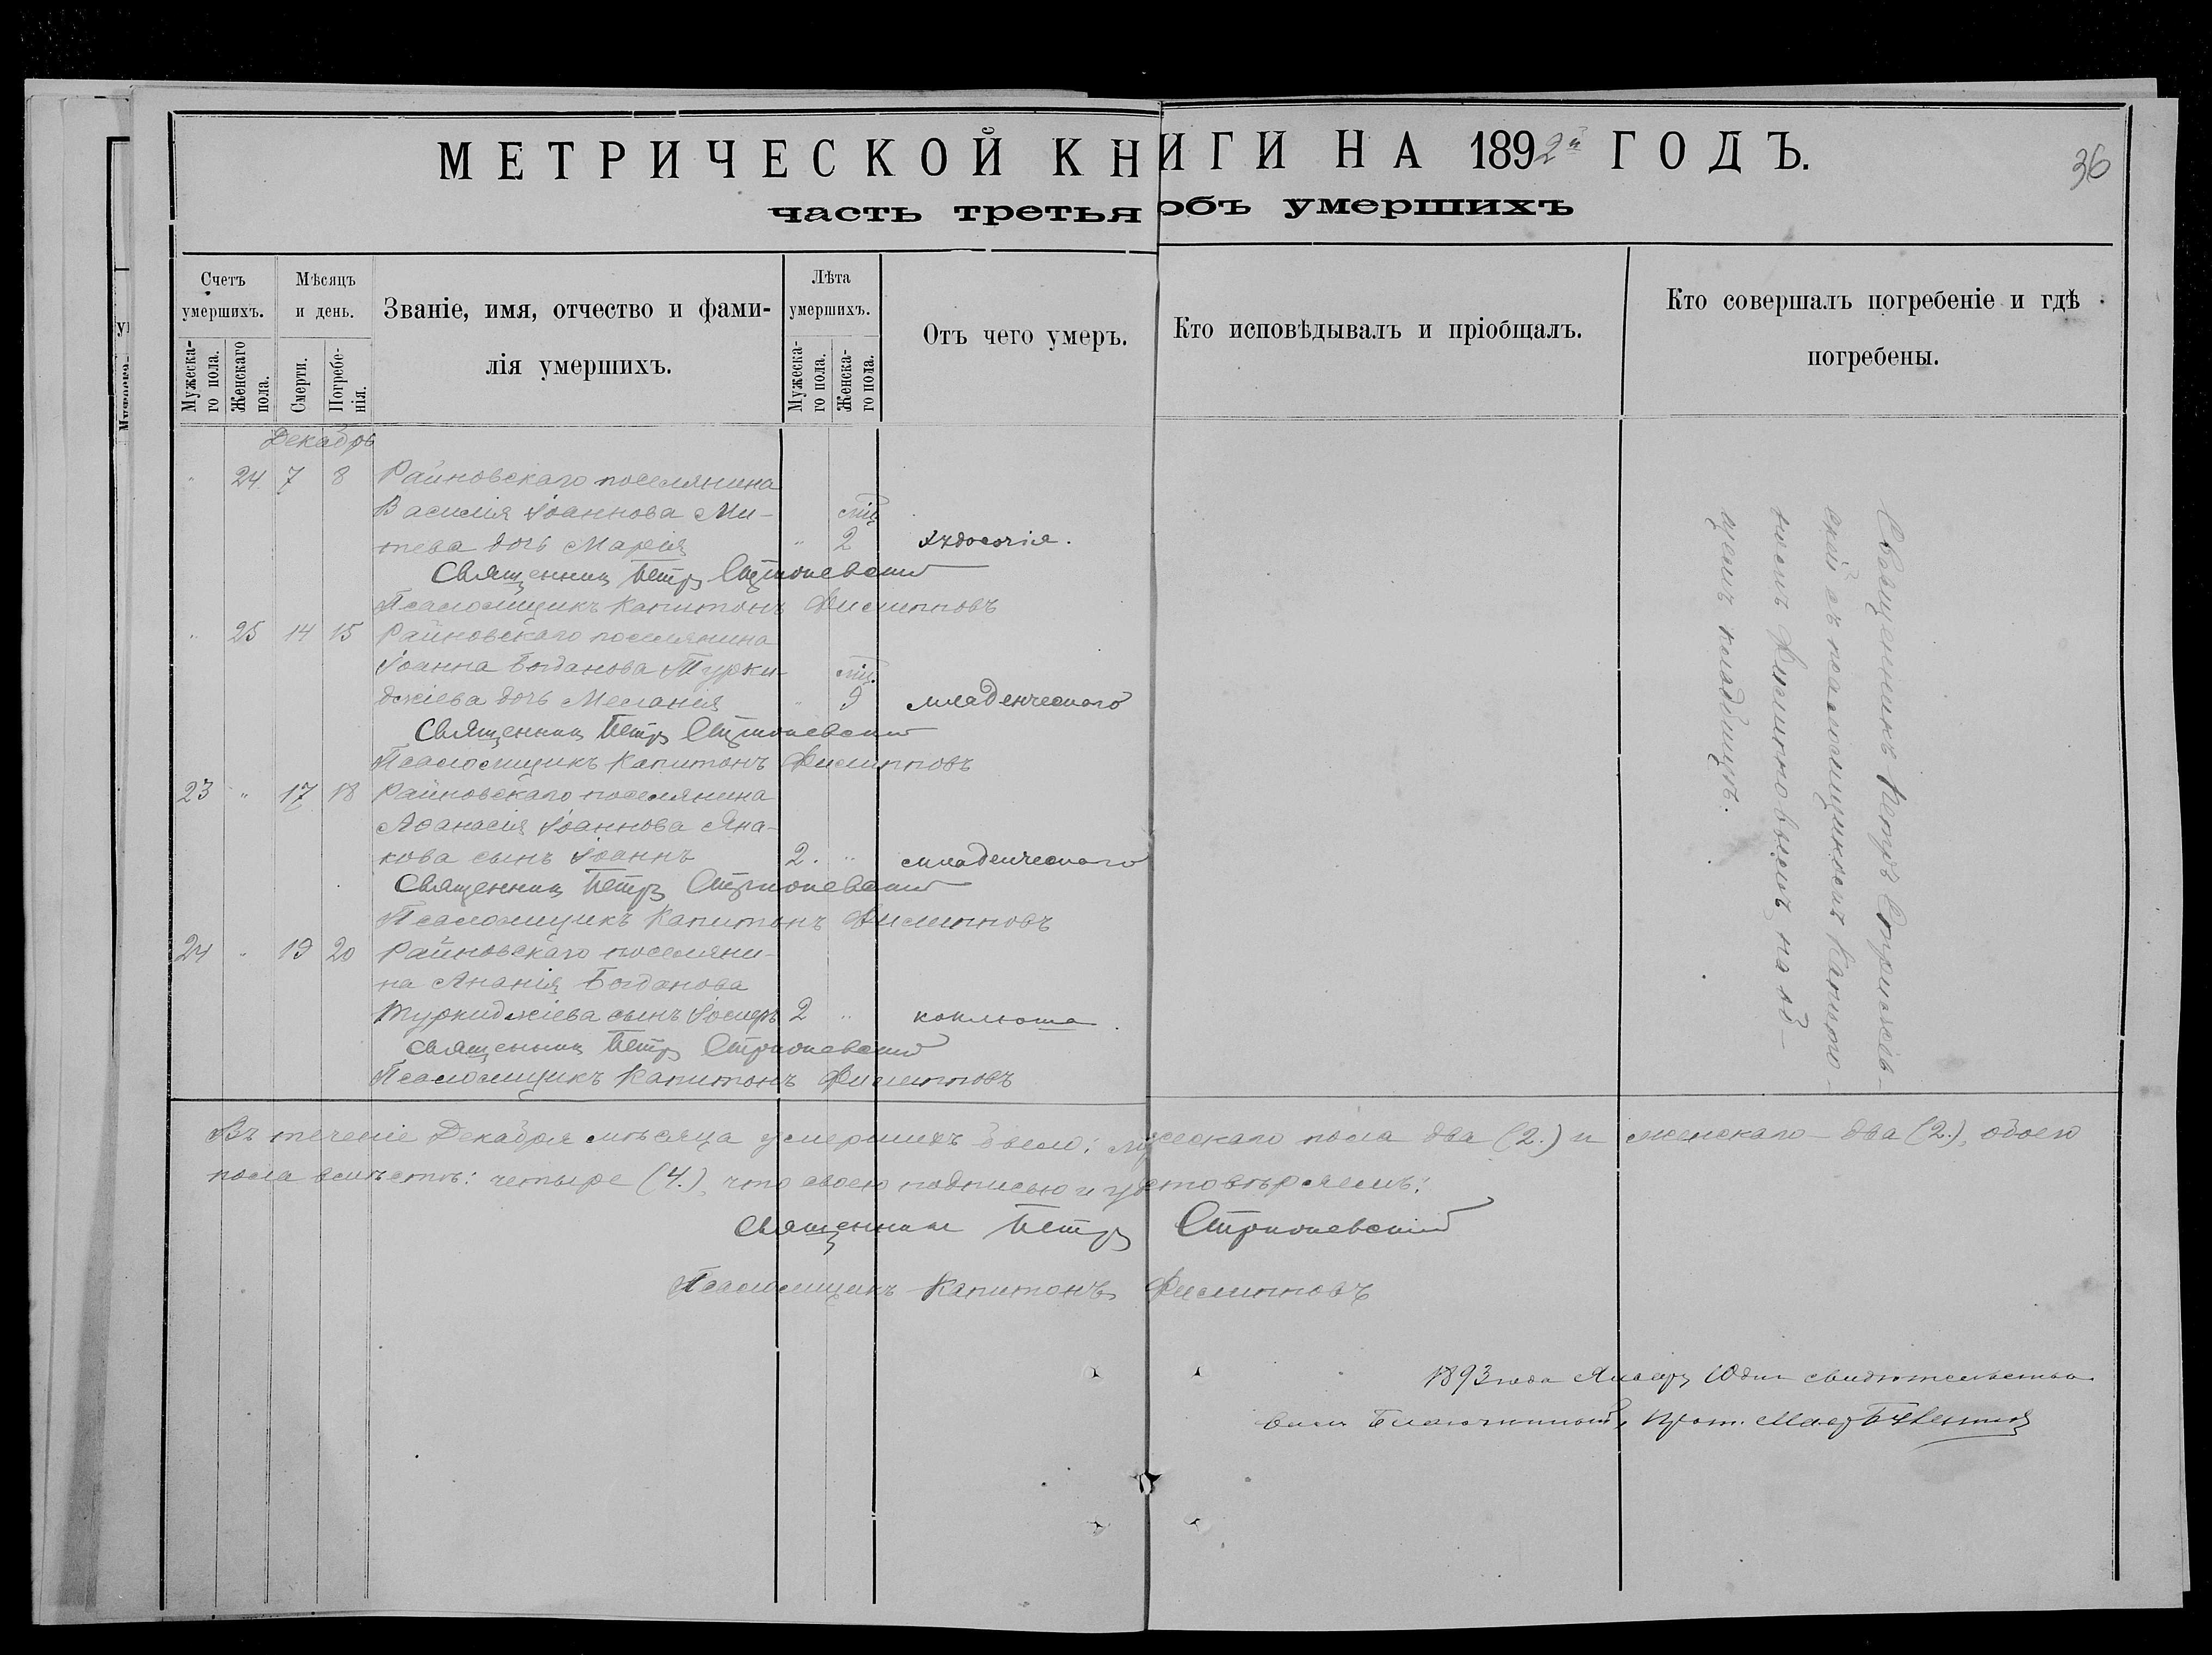 МЕТРИЧЕСКОЙ КНИГИ НА 1892й ГОДЪ.
36
часть третья объ умершихъ
Счетъ умершихъ.
Мужеска-го пола.
Женскаго пола.
Мѣсяцъ и день.
Смерти.
Погребе-нія.
Званіе, имя, отчество и фами-
лія умершихъ.
Лѣта умершихъ.
Мужеска-го пола.
Женска-го пола.
Отъ чего умеръ.
Кто исповѣдывалъ и пріобщалъ.
Кто совершалъ погребеніе и гдѣ
погребены.
Декабрь
" 24 7 8 Райновскаго поселянина
Василія Іоаннова Ми- мц
тева дочь Марія " 2 худосочіе.
Священникъ Петръ Стрижевскій
Псаломщикъ Капитонъ Филипповъ
" 25 14 15 Райновскаго поселянина
Іоанна Богданова Турки- мц.
джіева дочь Меланія " 9 младенческаго
Священникъ Петръ Стрижевскій
Псаломщикъ Капитонъ Филипповъ
23 " 17 18 Райновскаго поселянина
Аѳанасія Іоаннова Яна-
кова сынъ Іоаннъ 2. " младенческаго
Священникъ Петръ Стрижевскій
Псаломщикъ Капитонъ Филипповъ
24 " 19 20 Райновскаго поселяни-
на Ананія Богданова
Туркиджіева сынъ Іосифъ 2 " коклюша.
Священникъ Петръ Стрижевскій
Псаломщикъ Капитонъ Филипповъ
Священникъ Петръ Стрижев-
скій съ псаломщикомъ Капито-
номъ Филипповымъ на об-
щемъ кладбищѣ.
Въ теченіе Декабря мѣсяца умершихъ было: мужескаго пола два (2.) и женскаго - два (2.), обоего
пола вмѣстѣ: четыре (4.), что своею подписью и удостовѣряемъ:
Священникъ Петръ Стрижевскій
Псаломщикъ Капитонъ Филипповъ
1893 года Январ 10 дня свидѣтельство
валъ Благочинный, Прот.